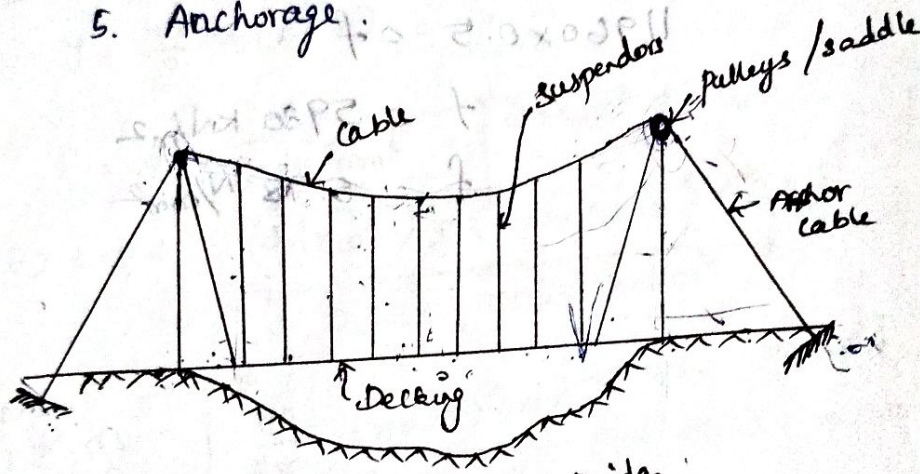 5. Anchorage.
suspendors
Pulleys / saddle
cable
Anchor
cable
Decking